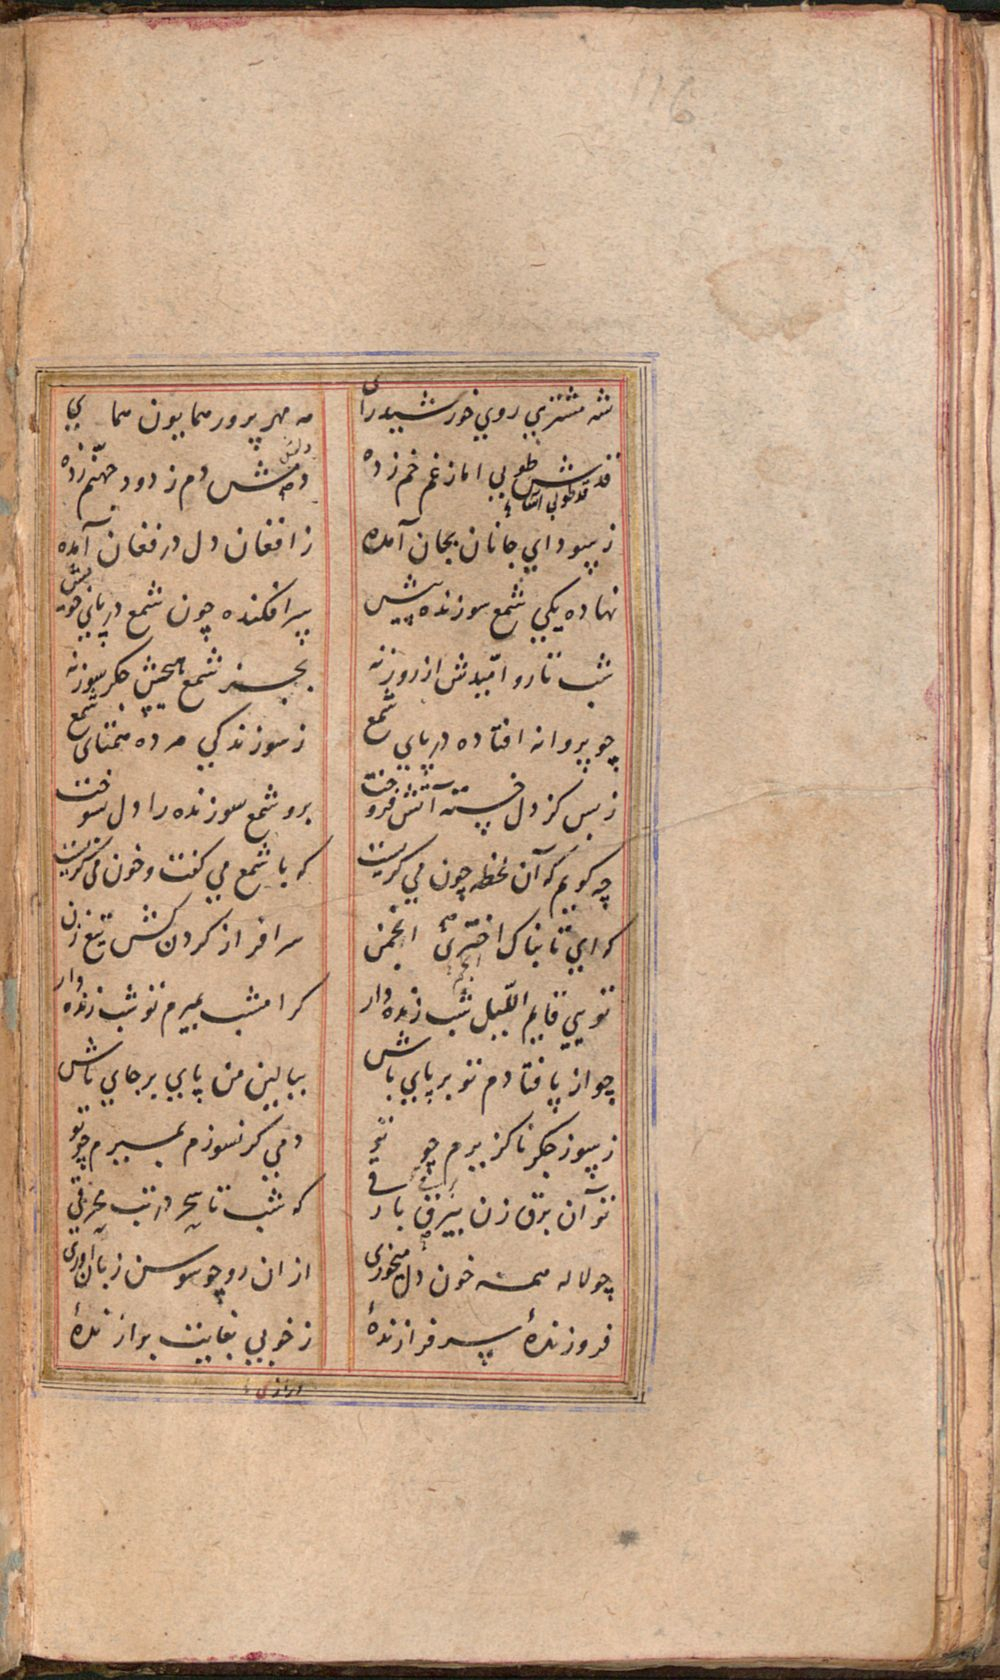 116
شه مشتری روی خورشید رای مه مهر پرور همایون همای
قدش طوبی اما ز غم خم زده دمش دم ز دود جهنم زده
ز سودای جانان بجان آمده ز افغان دل در فغان آمده
نهاده یکی شمع سوزنده پیش سر افکنده چون شمع در پای خویش
شب تار و امیدش از روز نه بجز شمع هیچش جگر سوز نه
چو پروانه افتاده در پای شمع ز سوزندگی مرده همتای شمع
ز بس کز دل خسته آتش فروخت برو شمع سوزنده را دل بسوخت
چه گویم که آن لحظه چون می گریست که با شمع می گفت و خون می گریست
که ای تابناک اختر انجمن سرافراز گردن کش تیغ زن
تویی قایم اللیل شب زنده دار گر امشب بمیرم تو شب زنده دار
چو از پا فتادم تو بر پای باش ببالین من پای بر جای باش
ز سوز جگر ناگزیرم چو تو دمی گر نسوزم بمیرم چو تو
تو آن برق زن بیرق بارقی که شب تا سحر در تب محرقی
چو لاله همه خون دل میخوری از ان رو چو سوسن زبان آوری
فروزندهٔ سرفرازندهٔ ز خوبی بغایت برازندهٔ